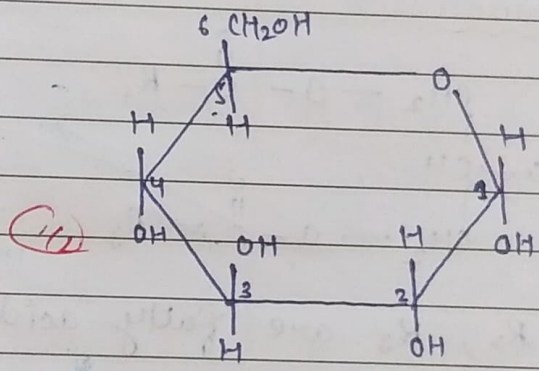 6 CH2OH
5 O
H H H
4 1
OH OH H OH
3 2
H OH